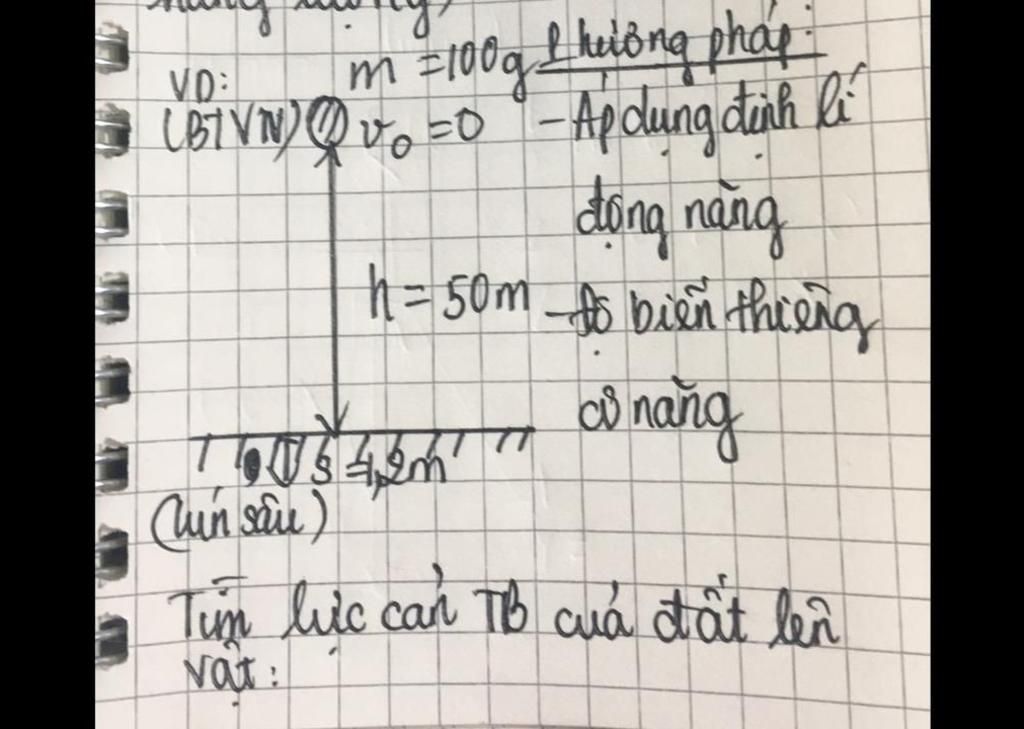 m = 100g Phương pháp:
VD:
(BTVN) v₀ = 0 - Áp dụng định lí
động năng
h = 50m - Độ biến thiên
cơ năng
(lún sâu)
Tìm lực cản TB của đất lên
vật: